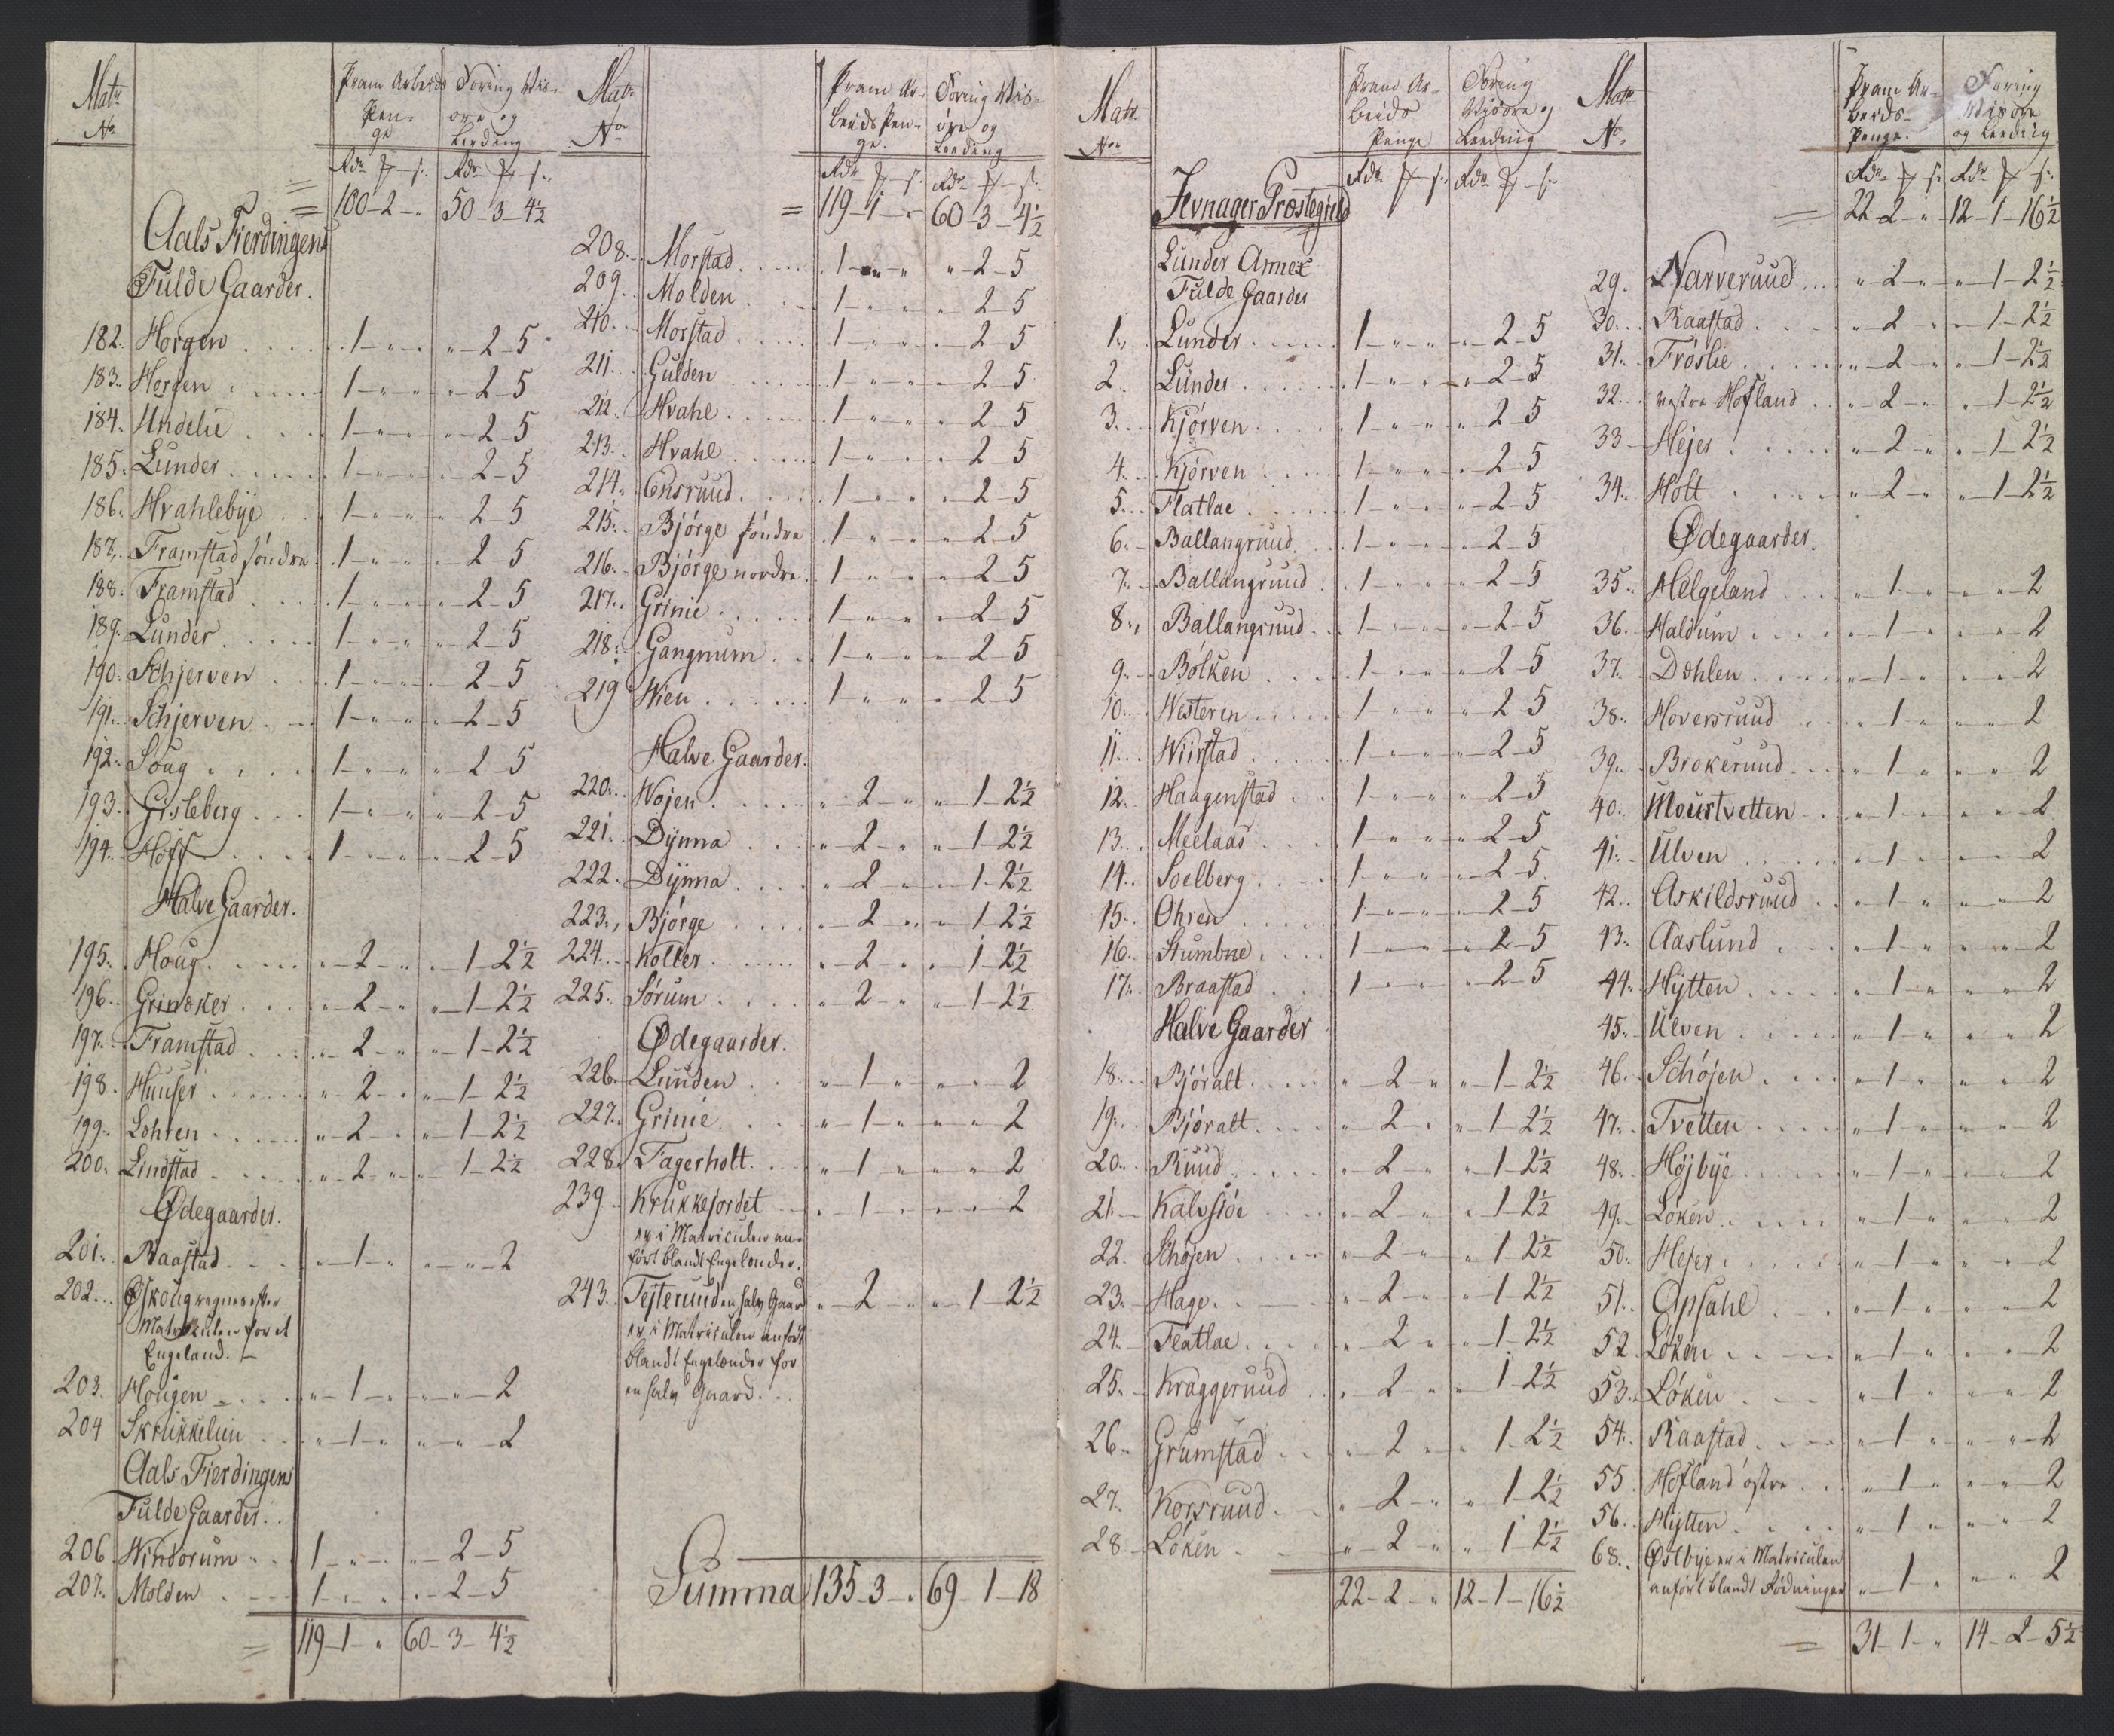 Matr No
Pram Arbeids Penge
Foring Wisøre og Leeding
Rdr
100 – 2 – "
50 – 3 – 4½
Aals Fierdingens
Fulde Gaarder.
182. Horgen . . . 1 – " – " " – 2 – 5
183. Horgen . . . 1 – " – " " – 2 – 5
184. Undelie . . . 1 – " – " " – 2 – 5
185. Lunder . . . 1 – " – " " – 2 – 5
186. Hvahlebÿe . . 1 – " – " " – 2 – 5
187. Framstad søndre . 1 – " – " " – 2 – 5
188. Framstad . . . 1 – " – " " – 2 – 5
189. Lunder . . . 1 – " – " " – 2 – 5
190. Schjerven . . . 1 – " – " " – 2 – 5
191. Schjerven . . . 1 – " – " " – 2 – 5
192. Soug . . . 1 – " – " " – 2 – 5
193. Gisleberg . . . 1 – " – " " – 2 – 5
194. Hoff . . . 1 – " – " " – 2 – 5
Halve Gaarder.
195. Houg . . . " – 2 – " " – 1 – 2½
196. Grinoker . . . " – 2 – " " – 1 – 2½
197. Framstad . . . " – 2 – " " – 1 – 2½
198. Huuser . . . " – 2 – " " – 1 – 2½
199. Lohren . . . " – 2 – " " – 1 – 2½
200. Lindstad . . . " – 2 – " " – 1 – 2½
Ødegaarder.
201. Raastad . . . " – 1 – " " – " – 2
202. Øskoug regnes efter
Matriculen for et
Engeland. –
203. Hougen . . . " – 1 – " " – " – 2
204 Skrukkelien . . " – 1 – " " – " – 2
Aals Fierdingens
Fulde Gaarder.
206 Windorum . . 1 – " – " " – 2 – 5
207. Molden . . . 1 – " – " " – 2 – 5
= 119 – 1 – " 60 – 3 – 4½
Matr No
Pram Arbeids Penge.
Foring Wisøre og Leeding
Rdr
= 119 – 1 – " 60 – 3 – 4½
208. Morstad . . . 1 – " – " " – 2 – 5
209. Molden . . . 1 – " – " " – 2 – 5
210. Morstad . . . 1 – " – " " – 2 – 5
211. Gulden . . . 1 – " – " " – 2 – 5
212. Hvahl . . . 1 – " – " " – 2 – 5
213. Hvahl . . . 1 – " – " " – 2 – 5
214. Ensruud . . . 1 – " – " " – 2 – 5
215. Bjørge søndre 1 – " – " " – 2 – 5
216. Bjørge nordre . 1 – " – " " – 2 – 5
217. Grinie . . . 1 – " – " " – 2 – 5
218. Gangnum . . 1 – " – " " – 2 – 5
219 Wien . . . 1 – " – " " – 2 – 5
Halve Gaarder.
220. Wojen . . . " – 2 – " " – 1 – 2½
221. Dÿnna . . . " – 2 – " " – 1 – 2½
222. Dÿnna . . . " – 2 – " " – 1 – 2½
223. Bjørge . . . " – 2 – " " – 1 – 2½
224. Koller . . . " – 2 – " " – 1 – 2½
225. Sørum . . . " – 2 – " " – 1 – 2½
Ødegaarder.
226. Lunden . . . " – 1 – " " – " – 2
227. Grinie . . . " – 1 – " " – " – 2
228. Fagerholt . . . " – 1 – " " – " – 2
239 Krukkejordet . . " – 1 – " " – " – 2
er i Matriculen an-
ført blandt Engelænder.
243. Tejteruud en halv Gaard " – 2 – " " – 1 – 2½
er i Matriculen anført
blandt Engelænder for
en halv Gaard. . .
Summa 135 – 3 – " 69 – 1 – 18
Matr No
Pram Arbeids Penge
Foring Wisøre og Leeding
Rdr
Jevnager Præstegield
Lunder Annex
Fulde Gaarder
1. Lunder . . . 1 – " – " " – 2 – 5
2. Lunder . . . 1 – " – " " – 2 – 5
3. Kjørven . . . 1 – " – " " – 2 – 5
4. Kjørven . . . 1 – " – " " – 2 – 5
5. Flatlae . . . 1 – " – " " – 2 – 5
6. Ballangruud . . 1 – " – " " – 2 – 5
7. Ballangruud . . 1 – " – " " – 2 – 5
8. Ballangruud . . 1 – " – " " – 2 – 5
9. Bølken . . . 1 – " – " " – 2 – 5
10. Westeren . . . 1 – " – " " – 2 – 5
11. Wiirstad . . . 1 – " – " " – 2 – 5
12. Haagenstad . . 1 – " – " " – 2 – 5
13. Meelaas . . . 1 – " – " " – 2 – 5
14. Soelberg . . . 1 – " – " " – 2 – 5
15. Ohren . . . 1 – " – " " – 2 – 5
16. Stumbne . . . 1 – " – " " – 2 – 5
17. Braastad . . . 1 – " – " " – 2 – 5
Halve Gaarder
18. Bjøralt . . . " – 2 – " " – 1 – 2½
19. Bjøralt . . . " – 2 – " " – 1 – 2½
20. Ruud . . . " – 2 – " " – 1 – 2½
21. Kalvsiøe . . . " – 2 – " " – 1 – 2½
22. Schøjen . . . " – 2 – " " – 1 – 2½
23. Hage . . . " – 2 – " " – 1 – 2½
24. Flatlae . . . " – 2 – " " – 1 – 2½
25. Kraggeruud . . " – 2 – " " – 1 – 2½
26. Grumstad . . " – 2 – " " – 1 – 2½
27. Korsruud . . . " – 2 – " " – 1 – 2½
28. Løken . . . " – 2 – " " – 1 – 2½
22 – 2 – " 12 – 1 – 16½
Matr No
Pram Arbeids Penge.
Foring Wisøre og Leeding
Rdr
= 22 – 2 – " 12 – 1 – 16½
29. Narveruud . . . " – 2 – " " – 1 – 2½
30. Raastad . . . " – 2 – " " – 1 – 2½
31. Frøslie . . . " – 2 – " " – 1 – 2½
32. vestre Høfland . . " – 2 – " " – 1 – 2½
33 Hejer . . . " – 2 – " " – 1 – 2½
34. Holt . . . " – 2 – " " – 1 – 2½
Ødegaarder.
35. Helgeland . . . " – 1 – " " – " – 2
36. Haldum . . . " – 1 – " " – " – 2
37. Dohlen . . . " – 1 – " " – " – 2
38. Hoversruud . . " – 1 – " " – " – 2
39. Brokeruud . . . " – 1 – " " – " – 2
40. Mourtvetten . . " – 1 – " " – " – 2
41. Ulven . . . " – 1 – " " – " – 2
42. Askildsruud . . " – 1 – " " – " – 2
43. Aaslund . . . " – 1 – " " – " – 2
44. Hÿtten . . . " – 1 – " " – " – 2
45. Ulven . . . " – 1 – " " – " – 2
46. Schøjen . . . " – 1 – " " – " – 2
47. Tvetten . . . " – 1 – " " – " – 2
48. Højbÿe . . . " – 1 – " " – " – 2
49. Løken . . . " – 1 – " " – " – 2
50. Hejer . . . " – 1 – " " – " – 2
51. Opsahl . . . " – 1 – " " – " – 2
52 Løken . . . " – 1 – " " – " – 2
53. Løken . . . " – 1 – " " – " – 2
54. Raastad . . . " – 1 – " " – " – 2
55. Høfland østre . . " – 1 – " " – " – 2
56. Hÿtten . . . " – 1 – " " – " – 2
68. Østbÿe er i Matriculen
anført blandt Rødninger " – 1 – " " – " – 2
= 31 – 1 – " 14 – 2 – 5½